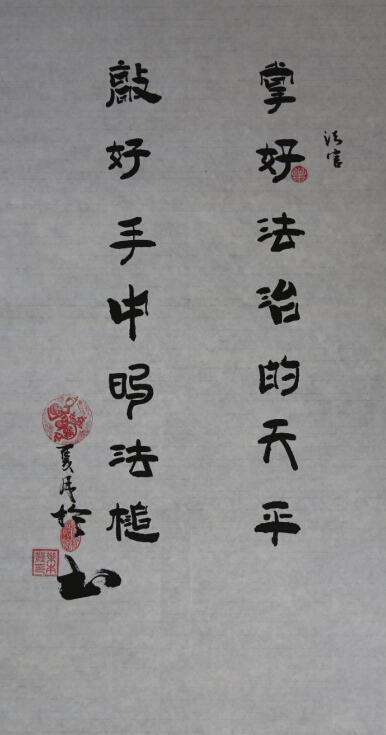 法官
掌好法治的天平
敲好手中的法槌
夏月
书